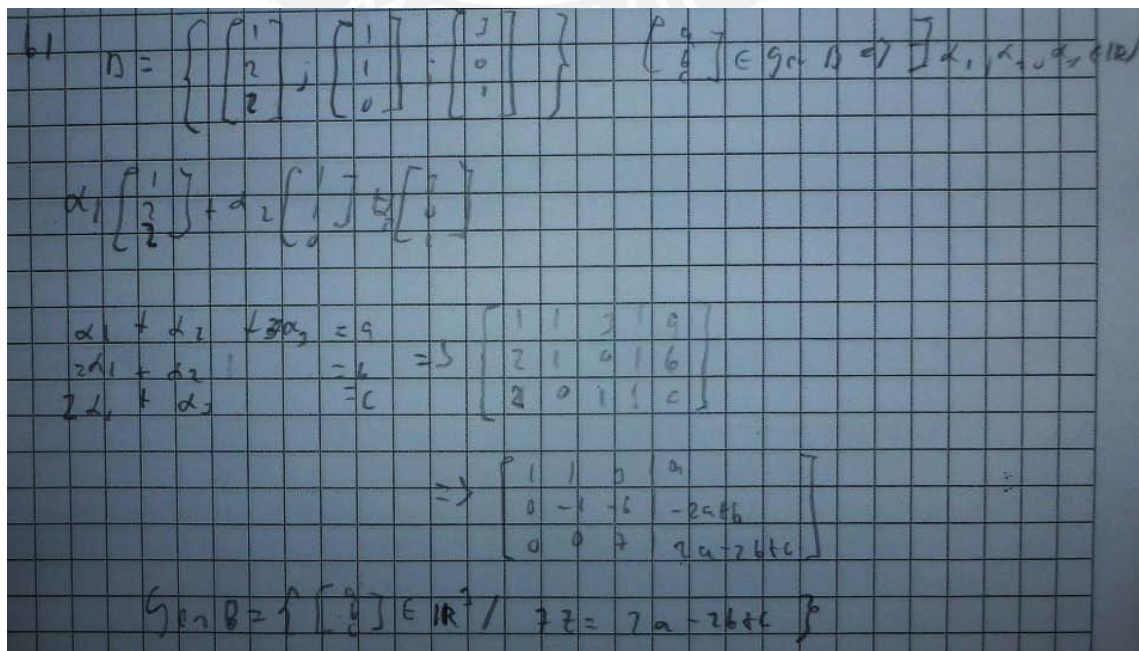 b) B = { [1 2 2] ; [1 1 0] ; [3 0 1] } [a b c] ∈ Gen B => ∃ α₁, α₂, α₃ ∈ IR/
α₁ [1 2 2] + α₂ [1 1 0] + α₃ [3 0 1]
α₁ + α₂ + 3α₃ = a
2α₁ + α₂ = b
2α₁ + α₃ = c
=> [1 1 3 | a
2 1 0 | b
2 0 1 | c]
=> [1 1 3 | a
0 -1 -6 | -2a+b
0 0 7 | 2a-2b+c]
Gen B = { [a b c] ∈ IR³ / 7z = 2a-2b+c }